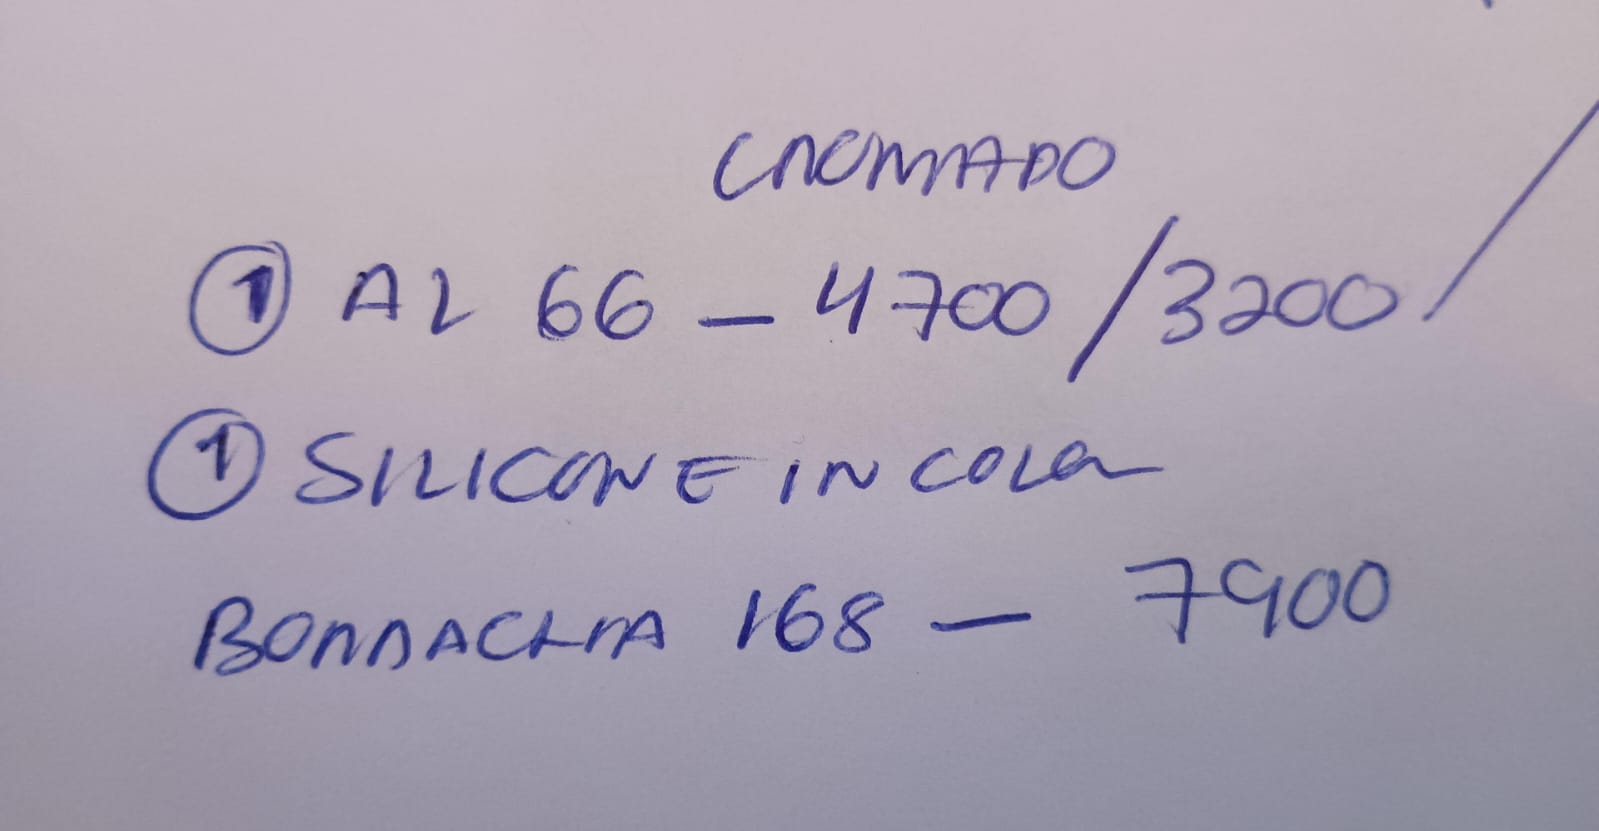 CROMADO
① AL 66 – 4700 / 3200 /
① SILICONE INCOLOR
BORRACHA 168 – 7900